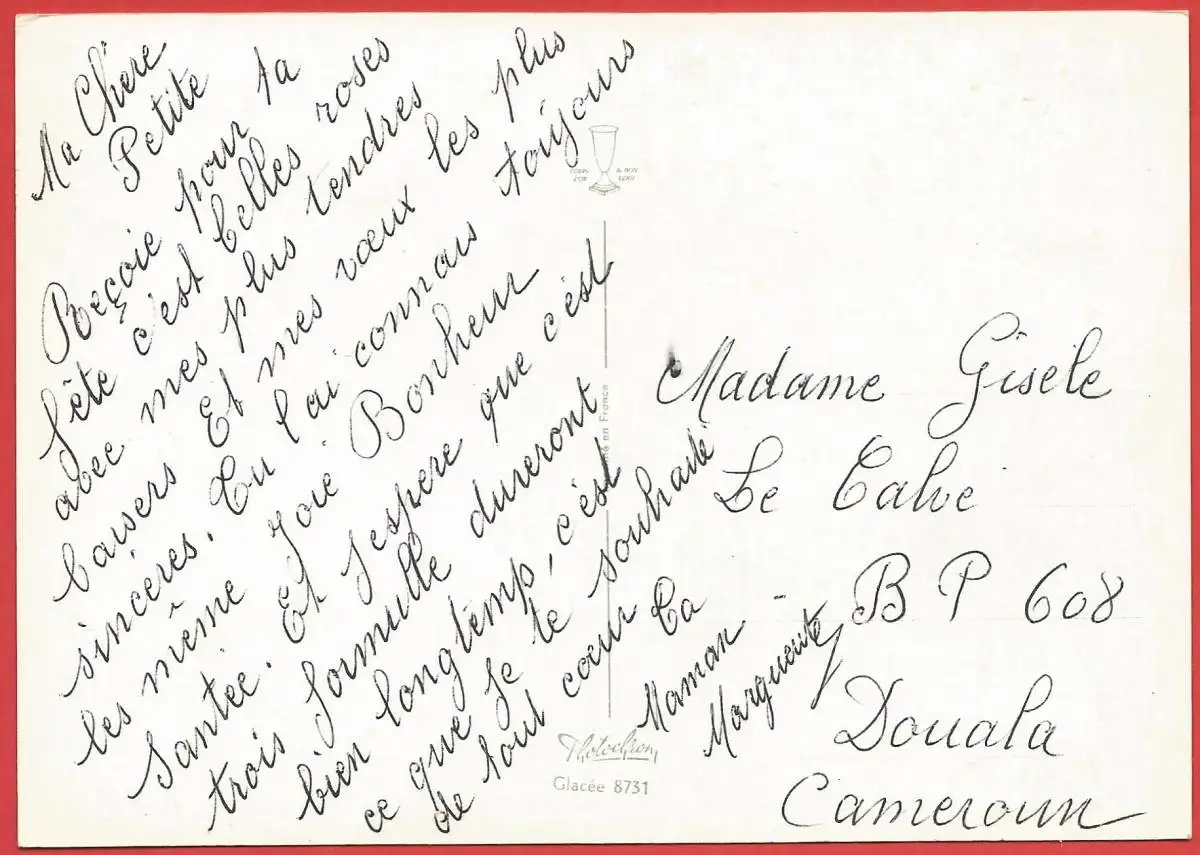 Ma Chère
Petite
Reçoie pour ta
fête c'est belles roses
avec mes plus tendres
baisers Et mes vœux les plus
sincères. Tu l'ai connais toujours
les même Joie Bonheur
Santée. Et J'espere que c'est
trois formulle dureront
bien longtemp, c'est
ce que Je te souhaite
de tout cœur Ta
Maman
Marguerite
Madame Gisele
Le Calve
B P 608
Douala
Cameroun
en France
Photochrom
Glacée 8731